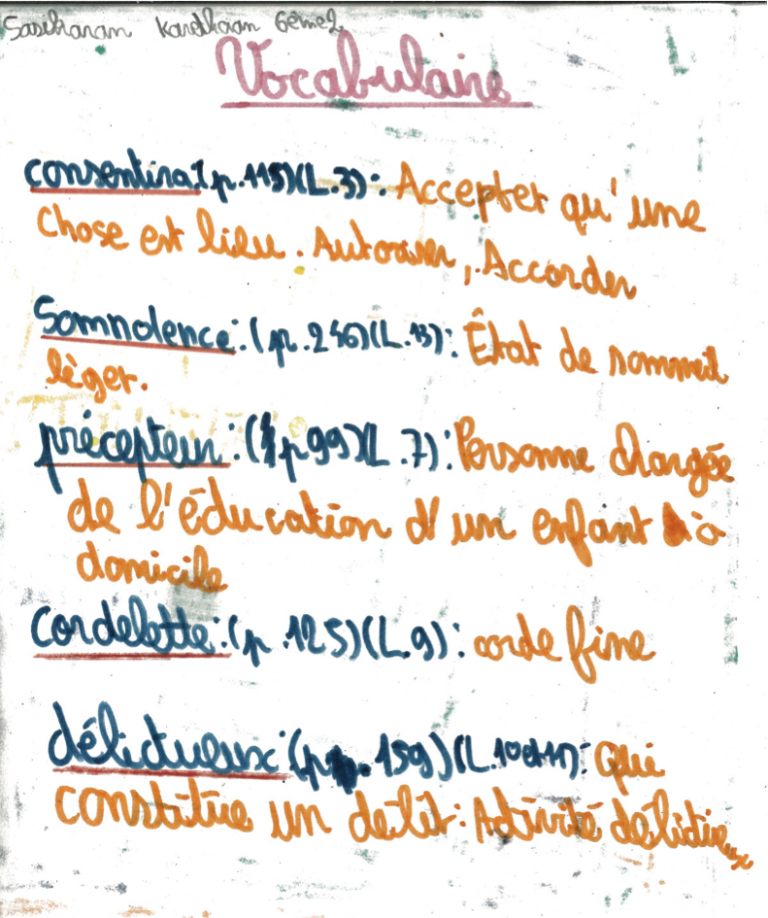 Kardhaan 6ème2
Vocabulaire
consentira (p.115)(L.3): Accepter qu'une
chose est lieu. Autoriser, Accorder
Somnolence: (p.246)(L.13): État de sommeil
lèger.
précepteur: (p99)(L.7): Personne chargée
de l'éducation d'un enfant à
domicile
Cordelette: (p.125)(L.9): corde fine
délictueux: (p.159)(L.10et11): Qui
constitue un délit: Activité délictueux